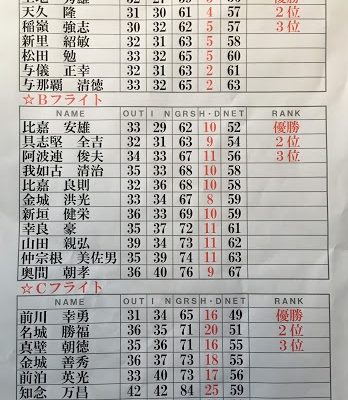 天久 隆 31 30 61 4 57 2位
稲嶺 強志 30 32 62 5 57 3位
新里 紹敏 32 31 63 5 58
松田 勉 33 32 65 5 60
与儀 正幸 32 31 63 2 61
与那覇 清徳 33 32 65 2 63
☆Bフライト
NAME OUT I N GRS H・D NET RANK
比嘉 安雄 33 29 62 10 52 優勝
具志堅 全吉 32 31 63 9 54 2位
阿波連 俊夫 34 33 67 11 56 3位
我如古 清治 35 33 68 10 58
比嘉 良則 32 36 68 10 58
金城 洪光 33 34 67 8 59
新垣 健栄 36 33 69 10 59
幸良 豪 35 37 72 11 61
山田 親弘 39 34 73 11 62
仲宗根 美佐男 35 39 74 11 63
奥間 朝孝 36 40 76 9 67
☆Cフライト
NAME OUT I N GRS H・D NET RANK
前川 幸勇 31 34 65 16 49 優勝
名城 勝福 36 35 71 20 51 2位
真壁 朝徳 35 36 71 16 55 3位
金城 善秀 36 37 73 18 55
前泊 英光 33 40 73 17 56
知念 万昌 42 42 84 25 59